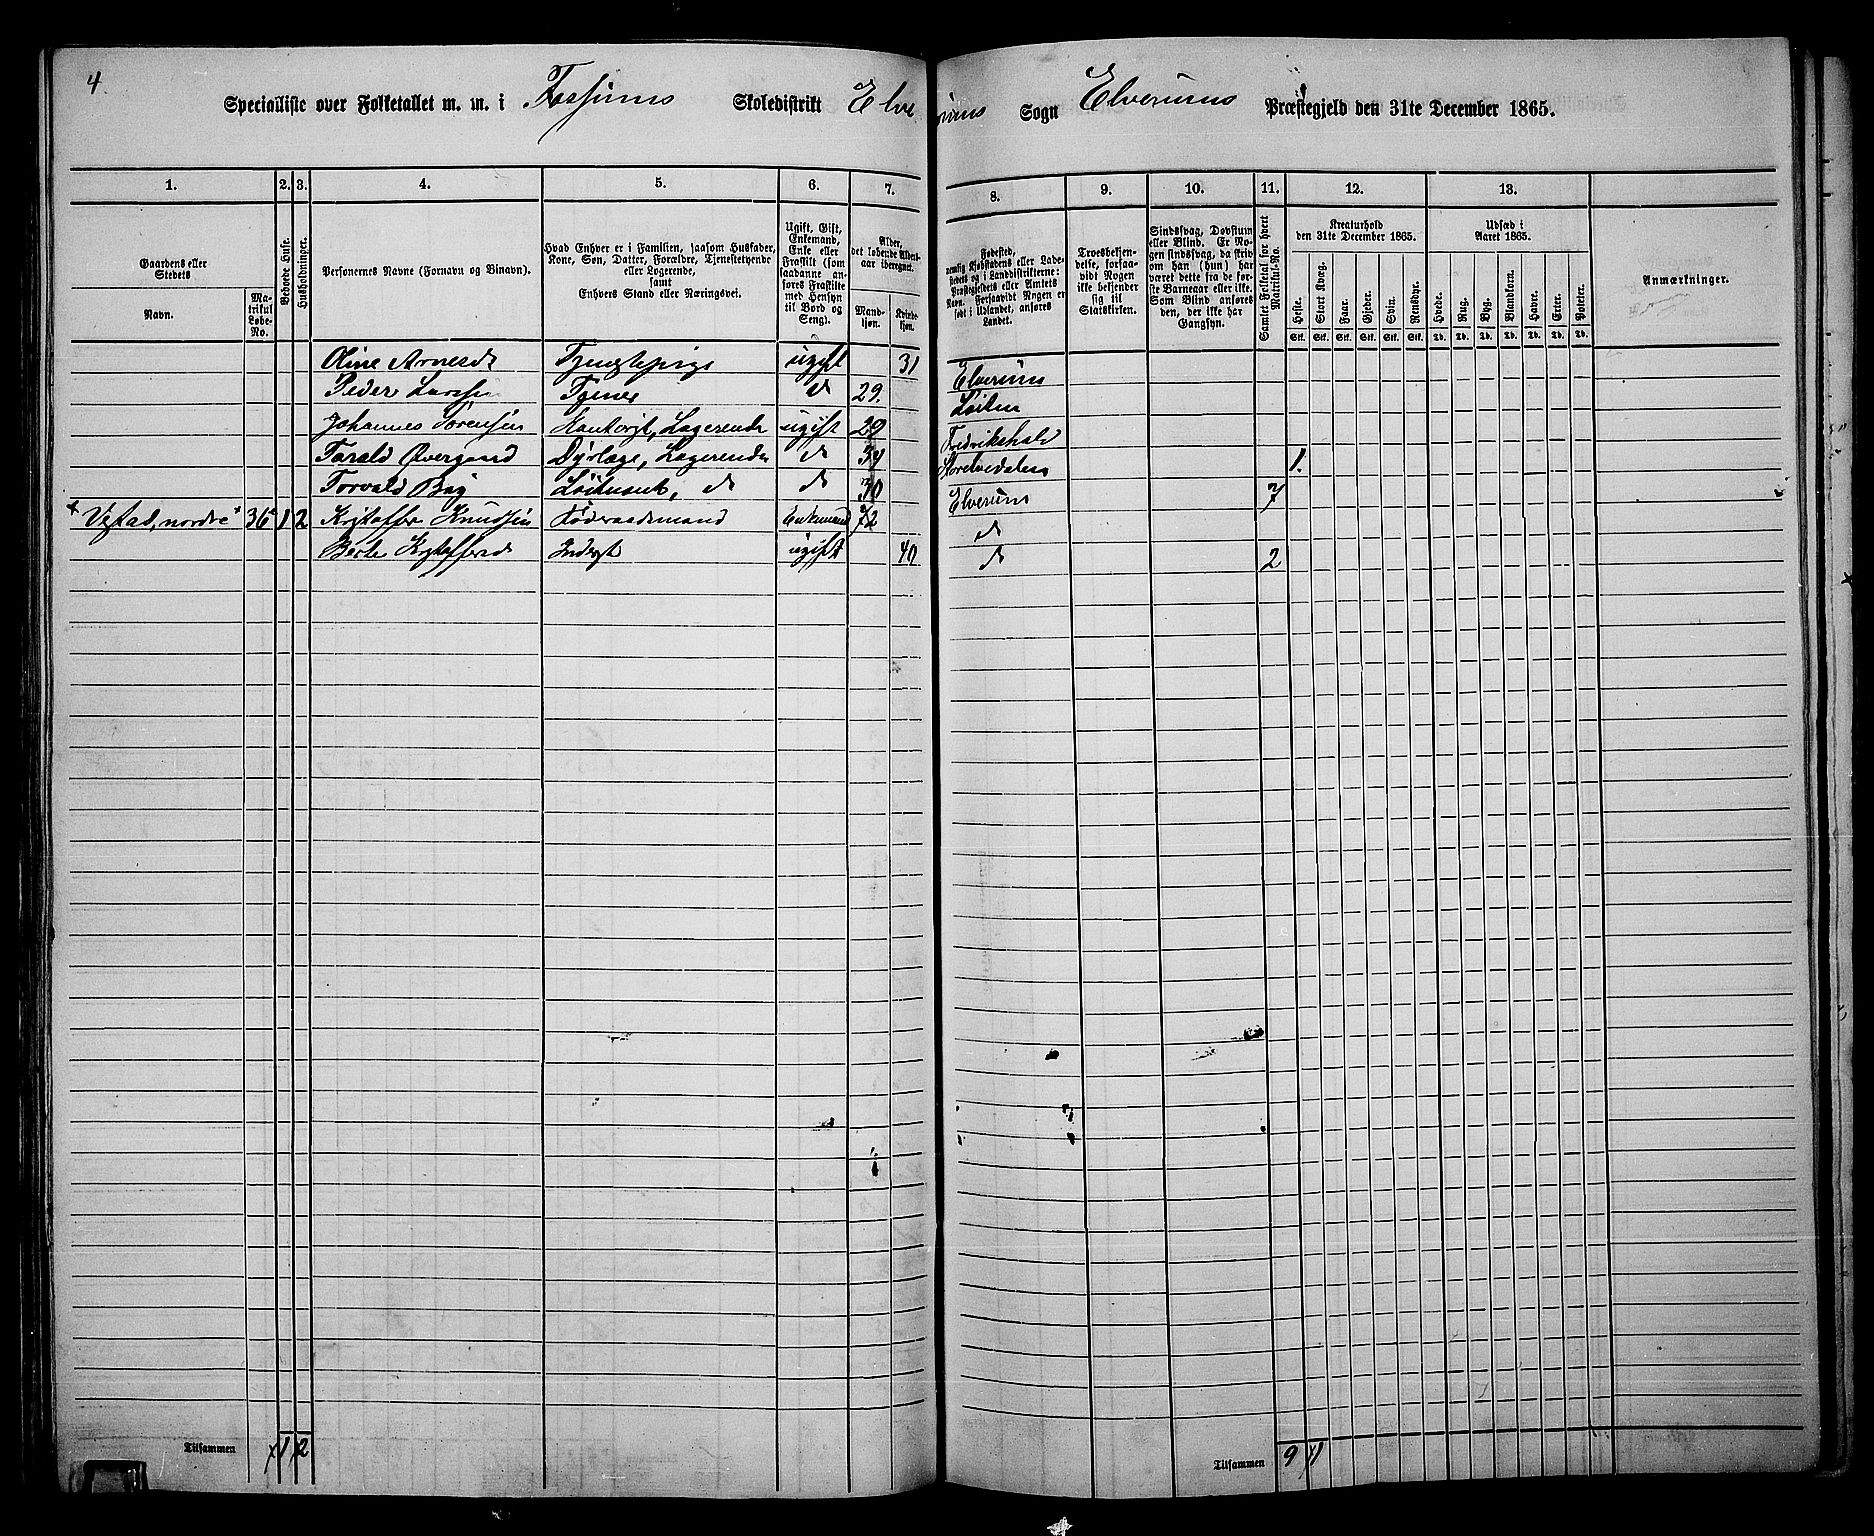 4.
Specialliste over Folketallet m. m. i Fossums Skoledistrikt Elverums Sogn Elverums Præstegjeld den 31te December 1865.
1. 2. 3. 4. 5. 6. 7. 8. 9. 10. 11. 12. 13.
Gaardens eller Stedets
Navn.
Matrikul Løbe-No.
Beboede Huse.
Husholdninger.
Personernes Navne (Fornavn og Binavn).
Hvad Enhver er i Familien, saasom Husfader, Kone, Søn, Datter, Forældre, Tjenestetyende eller Logerende, samt Enhvers Stand eller Næringsvei.
Ugift, Gift, Enkemand, Enke eller Fraskilt (som saadanne anføres Fraskilte med Hensyn til Bord og Seng).
Alder, det løbende Alders-aar iberegnet.
Mandkjøn.
Kvindekjøn.
Fødested, nemlig Kjøbstadens eller Ladestedets og i Landdistrikterne: Præstegjeldets eller Amtets Navn. Forsaavidt Nogen er født i Udlandet, anføres Landet.
Troesbekjendelse, forsaavidt Nogen ikke bekjender sig til Statskirken.
Sindssvag, Døvstum eller Blind. Er Nogen sindssvag, da skriv om han (hun) har været dette fra de første Barneaar eller ikke. Som Blind anføres den, der ikke har Gangsyn.
Samlet Folketal for hvert Matrikul-No.
Kreaturhold den 31te December 1865.
Heste. Stort Kvæg. Faar. Gjeder. Svin. Rensdyr.
Stk. Stk. Stk. Stk. Stk. Stk.
Udsæd i Aaret 1865.
Hvede. Rug. Byg. Blandkorn. Havre. Erter. Poteter.
Td. Td. Td. Td. Td. Td. Td.
Anmærkninger.
Oline Arnesd Tjenestepige ugift 31 Elverums
Peder Larsen Tjener d 29. Løiten
Johannes Sørensen Logerende ugift 29 Fredrikshald
Torald Øvergaard Dyrlæge, Logerende d 34 1.
Torvald Bay Løitenant, d d 30 Elverums 7
Vestad, nordre 36 1 2 Kristoffer Knudsen Føderaadsmand Enkemand 72 d
Berte Kristoffersd Inderst ugift 40 d 2
Tilsammen 1 2
Tilsammen 9 1